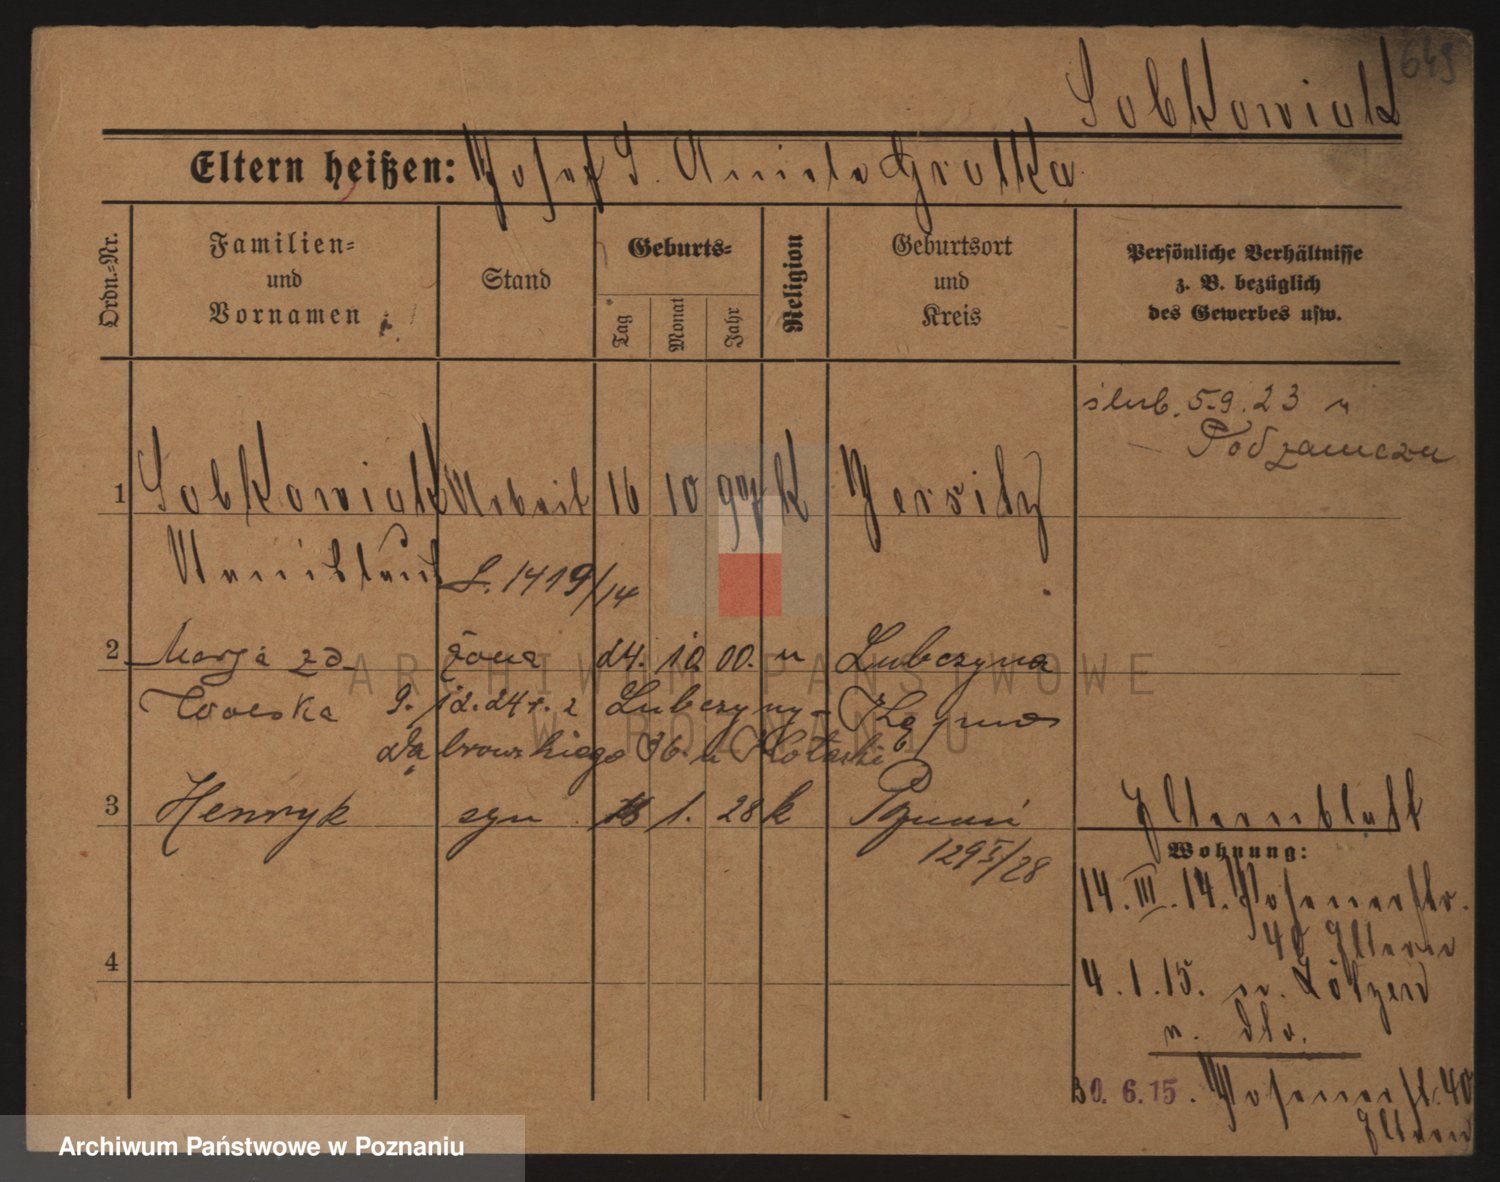 649
Sobkowiak
Eltern heißen: Josef S. Aniela Gratka
Ordn.=Nr.
Familien=
und
Vornamen
Stand
Geburts=
Tag
Monat
Jahr
Religion
Geburtsort
und
Kreis
Persönliche Verhältnisse
z. B. bezüglich
des Gewerbes usw.
ślub. 5.9.23 w
Podzamczu
1 Sobkowiak Arbeit 16 10 97 K Jersitz
L. 1419/14
2 Marja zd żona 24. 10 00. " Lubczyna
9. 12. 24 r. z Lubczyny
Dąbrowskiego 36. u
3 Henryk syn 1. 28 k Poznań
129 /28
4
Elternblatt
Wohnung:
14. III. 14. Posenerstr.
40 Eltern
4. 1. 15. n. Lötzen
30. 6. 15. Posenerst. 40
Eltern
ARCHIWUM PAŃSTWOWE
W POZNANIU
Archiwum Państwowe w Poznaniu